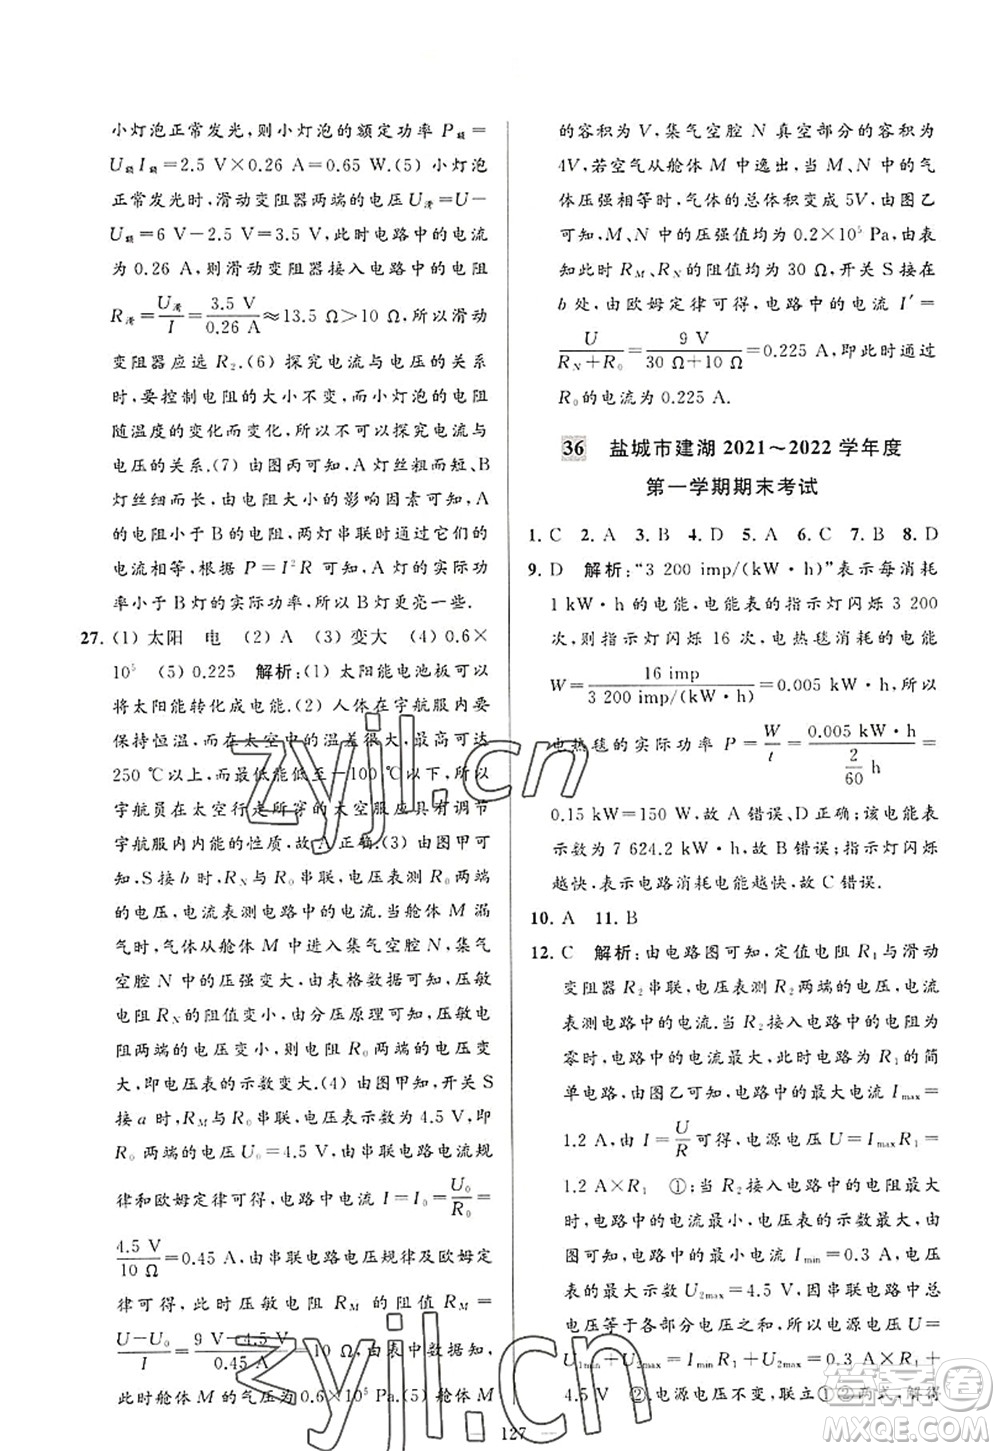 小灯泡正常发光,则小灯泡的额定功率 P额=
U额I额=2.5 V×0.26 A=0.65 W.(5) 小灯泡
正常发光时,滑动变阻器两端的电压U滑=U-
U额=6 V-2.5 V=3.5 V,此时电路中的电流
为 0.26 A,则滑动变阻器接入电路中的电阻
R滑=U滑/I=3.5 V/0.26 A≈13.5 Ω>10 Ω,所以滑动
变阻器应选 R2.(6) 探究电流与电压的关系
时,要控制电阻的大小不变,而小灯泡的电阻
随温度的变化而变化,所以不可以探究电流
与电压的关系.(7) A 灯丝相对粗而短,B
灯丝细而长,由图可知,
的电阻小于 B 的电阻,两灯串联时它们的电
流相等,根据 P=I²R 可知,A 灯的实际功
率小于 B 灯的实际功率,所以 B 灯更亮一些.
27. (1) 太阳 电 (2) A (3) 变大 (4) 0.6×
10⁵ (5) 0.225 解析:(1) 太阳能电池板可以
将太阳能转化成电能.(2) 人体在宇航服内要
保持恒温,而在太空中的温差很大,最高可达
250 ℃以上,而最低能低至-100 ℃以下,所以
宇航员在太空行走所穿的太空服应具有调节
宇航服内内能的性质,故A正确.(3) 由图甲
可知,S接 b 时,RN与 R0串联,电压表测 R0 两端
的电压,电流表测电路中的电流.当舱体 M 漏
气时,气体从舱体 M 中进入集气空腔 N,集气
空腔 N 中的压强变大,由表格数据可知,压敏
电阻 RN 的阻值变小,由分压原理可知,压敏电
阻两端的电压变小,则电阻 R0 两端的电压变
大,即电压表的示数变大.(4) 由图甲知,开关S
接 a 时,RM与R0串联,电压表示数为 4.5 V,即
R0 两端的电压 U0=4.5 V,由串联电路电流规
律和欧姆定律可得,电路中电流 I=I0=U0/R0=
4.5 V/10 Ω=0.45 A,由串联电路电压规律及欧姆定
律可得,此时压敏电阻 RM 的阻值 RM=
U-U0/I=9 V-4.5 V/0.45 A=10 Ω,由图乙可知,
此时舱体 M 的气压为0.6×10⁵ Pa.(5) 舱体 M
的容积为 V,集气空腔 N 真空部分的容积为
4V,若空气从舱体 M 中逸出,当 M、N 中的气
体压强相等时,气体的总体积变成 5V,由图乙
可知,M、N 中的压强值均为 0.2×10⁵ Pa,由表
知此时 RM、RN的阻值均为 30 Ω,开关 S 接在
b 处,由欧姆定律可得,电路中的电流 I′=
U/RN+R0=9 V/30 Ω+10 Ω=0.225 A,即此时通过
R0的电流为 0.225 A.
36 盐城市建湖 2021~2022 学年度
第一学期期末考试
1. C 2. A 3. B 4. D 5. A 6. C 7. B 8. D
9. D 解析:“3 200 imp/(kW·h)”表示每消耗
1 kW·h 的电能,电能表的指示灯闪烁 3 200
次,则指示灯闪烁 16 次,电热毯消耗的电能
W=16 imp/3 200 imp/(kW·h)=0.005 kW·h,所以
电热毯的实际功率 P=W/t=0.005 kW·h/(2/60 h)=
0.15 kW=150 W,故 A 错误、D 正确;该电能表
示数为 7 624.2 kW·h,故 B 错误;指示灯闪烁
越快,表示电路消耗电能越快,故 C 错误.
10. A 11. B
12. C 解析:由电路图可知,定值电阻 R1与滑动
变阻器 R2 串联,电压表测 R2 两端的电压,电流
表测电路中的电流.当 R2 接入电路中的电阻为
零时,电路中的电流最大,此时电路为 R1 的简
单电路,由图乙可知,电路中的最大电流 Imax=
1.2 A,由 I=U/R可得,电源电压 U=ImaxR1=
1.2 A×R1 ①;当 R2接入电路中的电阻最大
时,电路中的电流最小,电压表的示数最大,由
图乙可知,电路中的最小电流 Imin=0.3 A,电压
表的最大示数 U2max=4.5 V,因串联电路中总
电压等于各部分电压之和,所以,电源的电压
U=IminR1+U2max=0.3 A×R1+
4.5 V ②,电源电压不变,联立①②两式,解得
127
zyjl.cn
zyjl.cn
答案圈
MXQE.COM